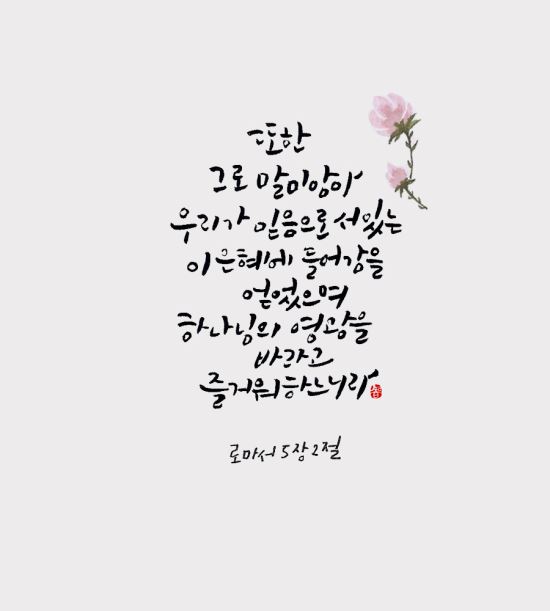 또한
그로 말미암아
우리가 믿음으로 서 있는
이 은혜에 들어감을
얻었으며
하나님의 영광을
바라고
즐거워하느니라
로마서 5장 2절